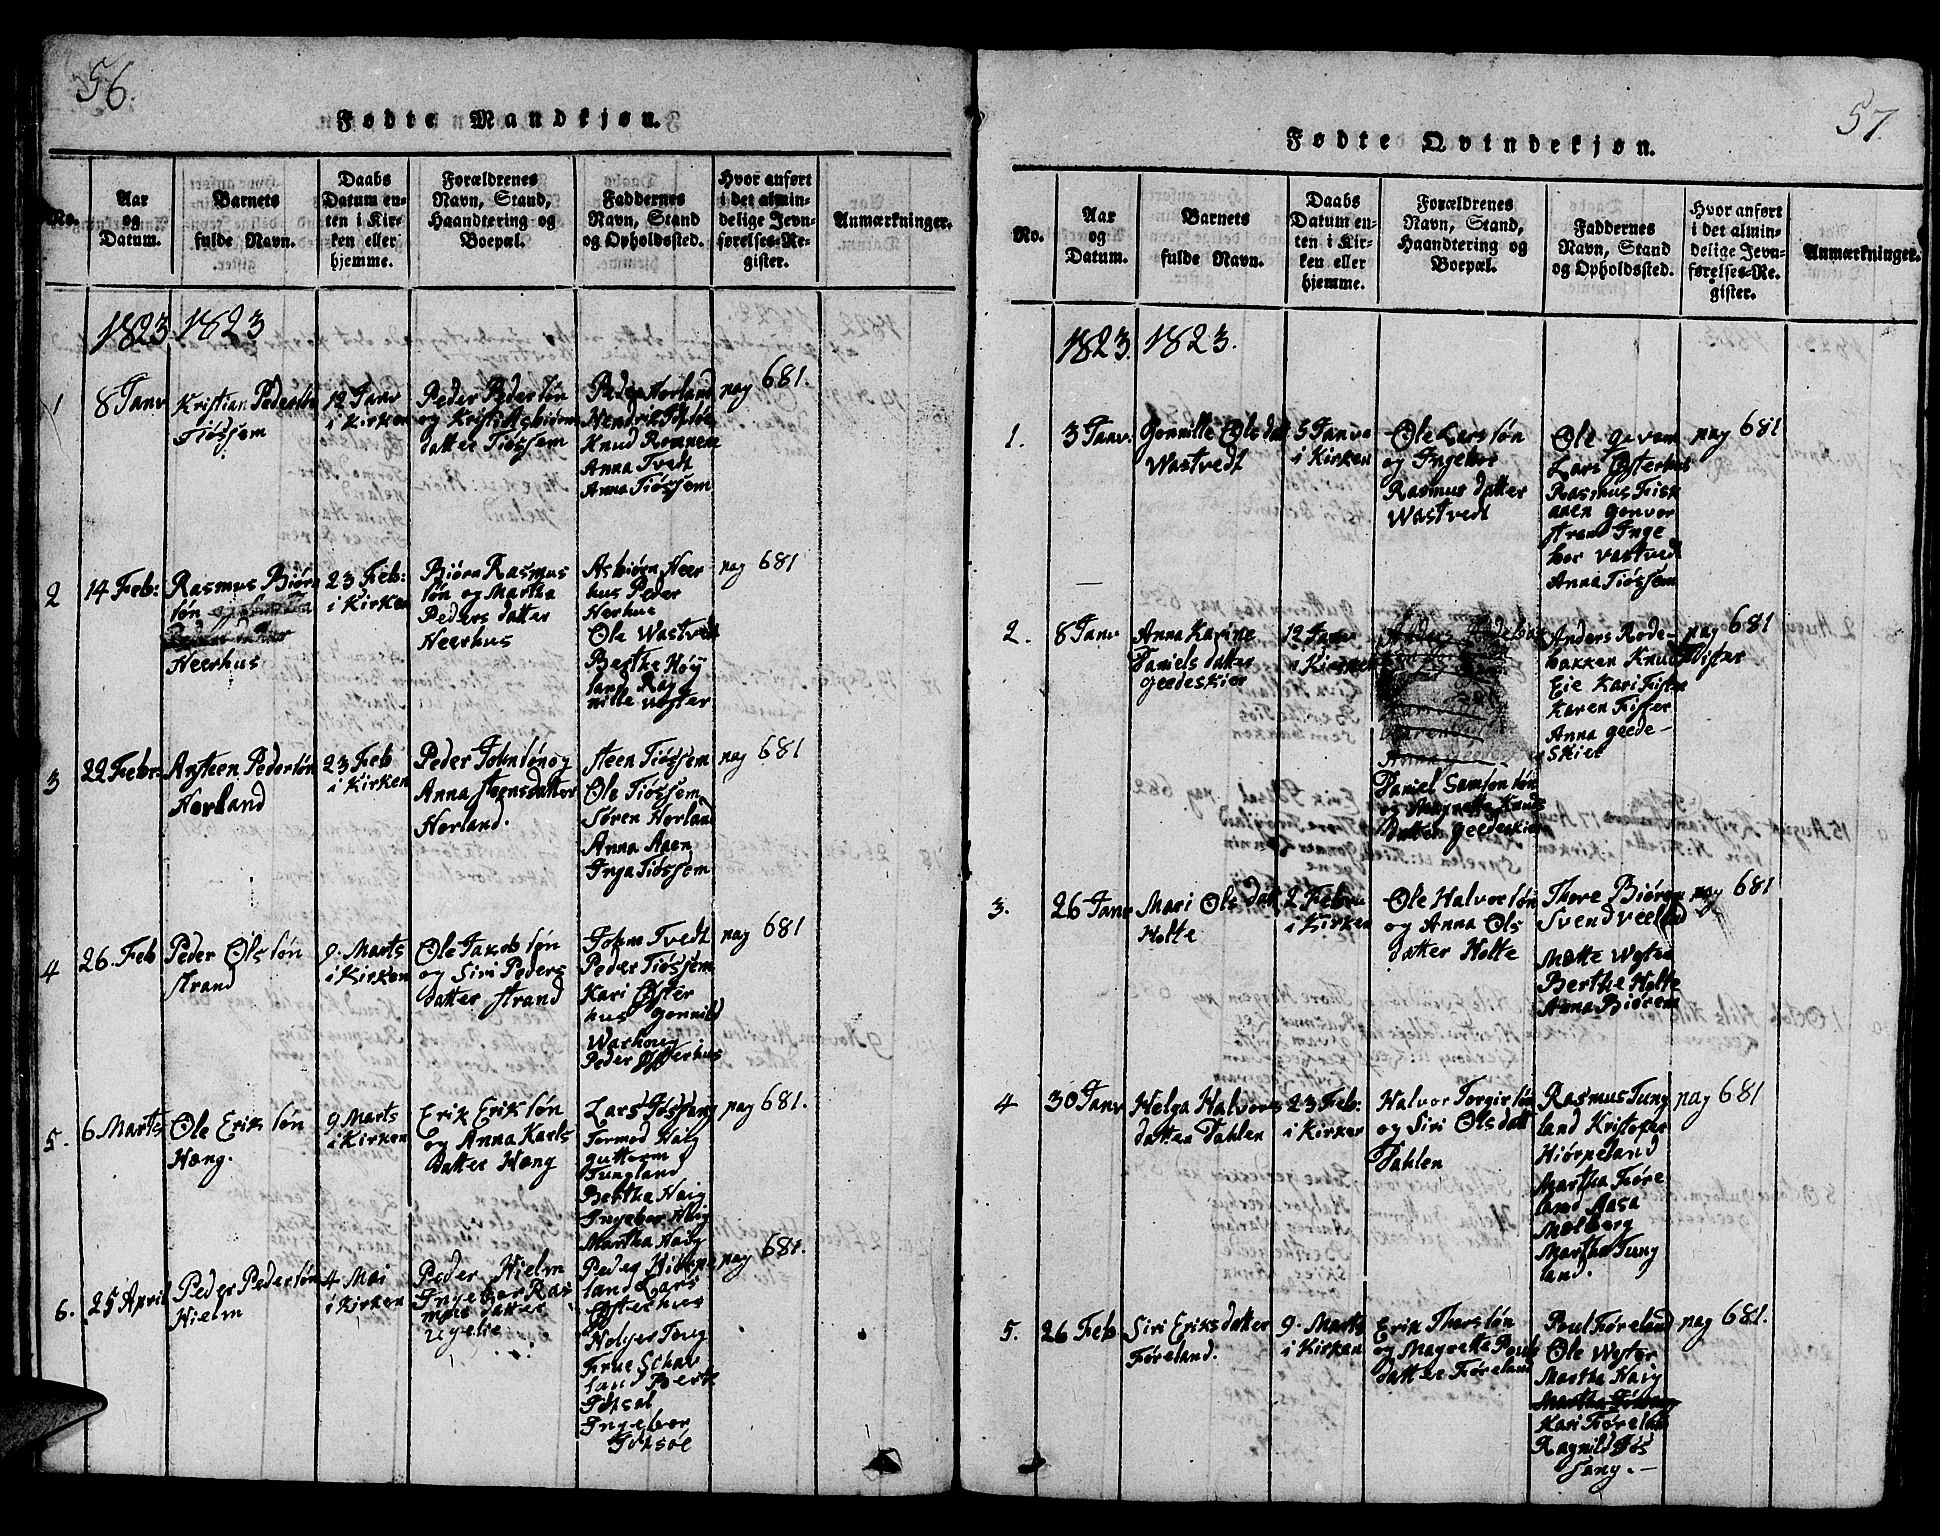 56.
Fødte Mandkjøn.
No.
Aar
og
Datum.
Barnets
fulde Navn.
Daabs
Datum en-
ten i Kir-
ken eller
hjemme.
Forældrenes
Navn, Stand,
Haandtering og
Boepæl.
Faddernes
Navn, Stand
og Opholdssted.
Hvor anført
i det almin-
delige Jevn-
førelses-Re-
gister.
Anmærkninger.
1823. 1823
1
8 Janv
Kristian Pedersøn
Tiøssem
12 Janv
i Kirken
Peder Pedersøn
og Kristi Asbiørns
datter Tiøssem
Peder Horland
Hendrik
Knud Romnem
Anna Tvedt
Anna Tiøssem
pag 681.
2
14 Feb:
Rasmus Biørn
søn
Heerhus
23 Feb:
i Kirken
Biørn Rasmus
søn og Martha
Peders datter
Heerhus
Asbiørn Heer
hus Peder
Herhus
Ole Wastvedt
Berthe Høÿ
land Rag
nille Wester
pag 681
3
22 Febr:
Asteen Pedersøn
Horland
23 Feb
i Kirken
Peder Johnsøn og
Anna Steensdatter
Horland.
Steen Tiøssem
Ole Tiøssem
Søren Horland
Anna Aaen
Inga Tiøssem
pag 681
4
26. Feb
Peder Olssøn
Strand
9. Marts
i Kirken
Ole Jakobsøn
og Siri Peders
datter Strand
John Tvedt
Peder Tiøssem
Kari Øster
hus Gonnild
Peder Østerhus
pag 681
5.
6 Marts
Ole Eriksøn
Hæng.
9 Marts
i Kirken
Erik Eriksøn
og Anna Karls
datter Hæng
Lars
Tormod Haig
guttorm
Tungland
Bertha Haig
Ingebor Haig
Martha Haig
pag 681.
6.
25 April
Peder Pedersøn
Hielm
4 Mai
i Kirken
Peder Hielm
Ingebor Ras
mus datter
Peder Hiørpe
land Lars
Østerhus
Holger Tung
Frue Schav
land Berte
Ingebor
pag 681.
57.
Fødte Qvindekjøn.
No.
Aar
og
Datum.
Barnets
fulde Navn.
Daabs
Datum en-
ten i Kir-
ken eller
hjemme.
Forældrenes
Navn, Stand,
Haandtering og
Boepæl.
Faddernes
Navn, Stand
og Opholdssted.
Hvor anført
i det almin-
delige Jevn-
førelses-Re-
gister.
Anmærkninger.
1823. 1823.
1.
3 Janv:
Gonnille Ols dat
Wastvedt
5 Janv
i Kirken
Ole Larssøn
og Ingebor
Rasmus datter
Wastvedt
Ole
Lars Østerhus
Rasmus Fisk
aaen Gonvor
Strand Inge
bor Vastvedt
Anna Tiøssem
pag 681
2.
8 Janv
Anna Karine
Daniels datter
geedeskier
12 Janv
i Kirken
Daniel Samsonsøn
og Magrette Knuds
datter geedeskier
Anders Rode-
bakken Knud Fister
Eie Kari Fister
Karen Fister
Anna geede-
skier
pag 681
3.
26 Janv
Mari Ols dat
Holte
2 Febr
i Kirken
Ole Halvorsøn
og Anna Ols
datter Holte
Thore Biøren
Svendveeland
Mette Wester
Berthe Holte
Anna Biøren
pag 681
4
30 Janv
Helga Halvors
datter Dahlen
23 Feb:
i Kirken
Halvor Torgirsøn
og Siri Olsdatt
Dahlen
Rasmus Tung
land Kristofer
Hiørpeland
Martha Føre
land Aasa
Molberg
Martha Tung
land.
pag 681
5.
26 Feb
Siri Eriksdatter
Føreland.
9. Marts
i Kirken
Erik Thorsøn
og Magrette Pouls
datter Føreland
Poul Føreland
Ole Wester
Martha Haig
Kari Føreland
Ragnild Fos
sang.
pag 681.